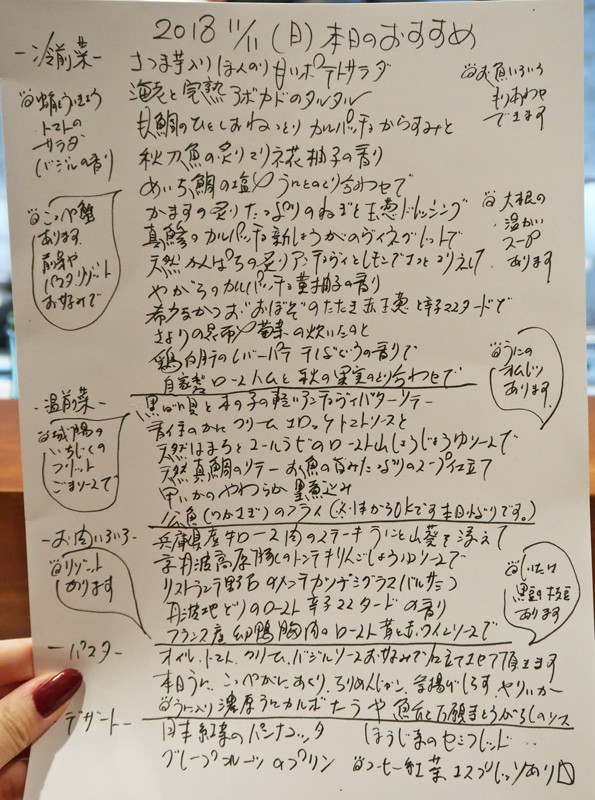 2018 11/11 (日) 本日のおすすめ
-冷前菜-
さつま芋入りほんのり甘いポテトサラダ
海老と完熟アボカドのタルタル
真鯛のひとしおねっとりカルパッチョからすみと
秋刀魚の炙りマリネ花柚子の香り
めいち鯛の塩〆うにとのとり合わせで
かますの炙りたっぷりのねぎと玉葱ドレッシング
真鯵のカルパッチョ新しょうがのヴィネグレットで
天然かんぱちの炙り
やがらのカルパッチョ黄柚子の香り
かつおのたたき赤玉葱と辛子マスタードで
さよりの昆布〆菊菜の炊いたのと
鶏白肝のレバーパテ干しぶどうの香りで
自家製ロースハムと秋の果実のとり合わせで
トマトの
サラダ
(バジルの香り)
お魚いろいろ
もりあわせ
できます
こっぺ蟹
あります
前菜や
パスタリゾット
お好みで
大根の
温かい
スープ
あります
うにの
あります
-温前菜-
城陽の
いちじくの
フリット
ごまソースで
黒ばい貝と木の子の軽いアンチョヴィバターソテー
クリームコロッケトマトソースと
天然はまちとコールラビのローストさんしょうじょうゆソースで
天然真鯛のソテーお魚の旨みたっぷりのスープ仕立て
甲いかのやわらか墨煮込み
公魚(わかさぎ)のフライ
-お肉いろいろ-
リゾット
あります
兵庫県産牛ロース肉のステーキうにと山葵を添えて
京丹波高原豚のトンテキりんごしょうゆソースで
リストランテ野呂のメンチカツデミグラスバルサミコ
丹波地どりのロースト辛子マスタードの香り
フランス産幼鴨胸肉のロースト昔と赤ワインソースで
しいたけ
黒豆の枝豆
あります
-パスタ-
オイル、トマト、クリーム、バジルソースお好みで仕立てさせて頂きます
本日うに、こっぺがに、あさり、ちりめんじゃこ、釜揚げしらす、やりいか
うに入り濃厚うにカルボナーラや魚介と万願寺とうがらしのソース
デザート-
和紅茶のパンナコッタ ほうじ茶のセミフレッド
グレープフルーツのプリン コーヒー紅茶エスプレッソあり